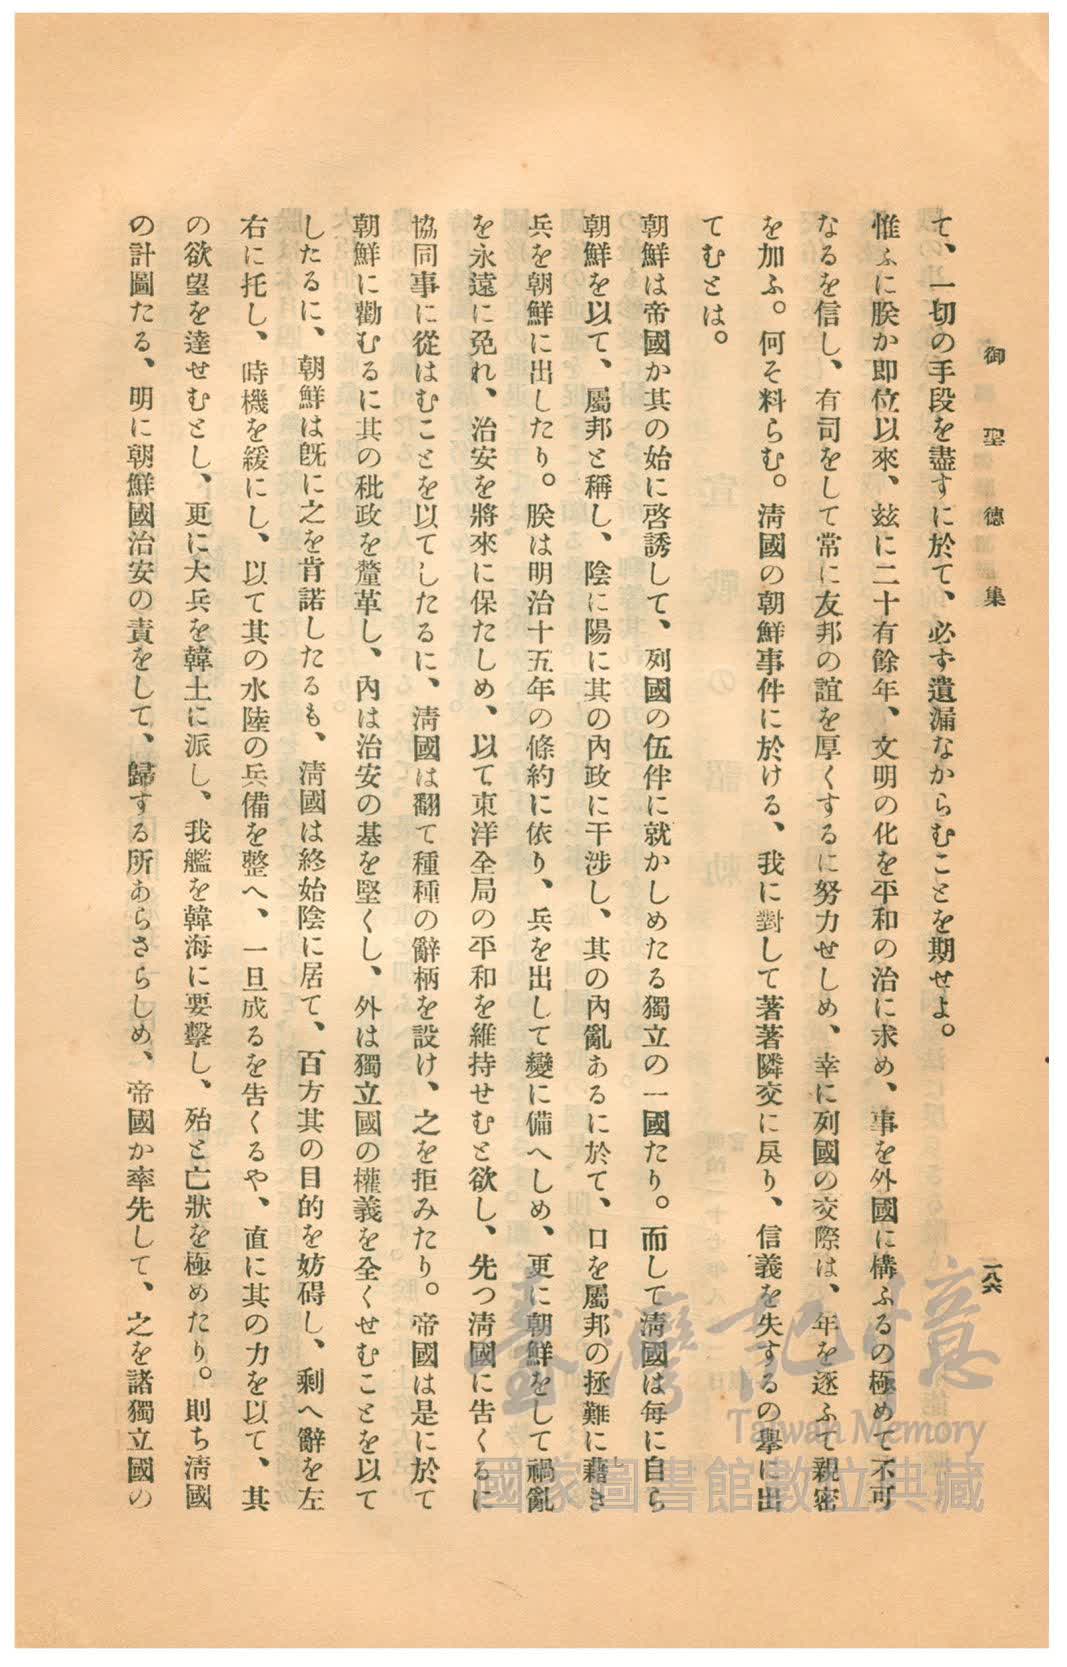 御聖德集
一八六
て、一切の手段を盡すに於て、必ず遺漏なからむことを期せよ。
惟ふに朕か即位以來、玆に二十有餘年、文明の化を平和の治に求め、事を外國に構ふるの極めて不可
なるを信し、有司をして常に友邦の誼を厚くするに努力せしめ、幸に列國の交際は、年を逐ふて親密
を加ふ。何そ料らむ。淸國の朝鮮事件に於ける、我に對して著著隣交に戾り、信義を失するの擧に出
てむとは。
朝鮮は帝國か其の始に啓誘して、列國の伍伴に就かしめたる獨立の一國たり。而して淸國は每に自ら
朝鮮を以て、屬邦と稱し、陰に陽に其の內政に干涉し、其の內亂あるに於て、口を屬邦の拯難に藉き
兵を朝鮮に出したり。朕は明治十五年の條約に依り、兵を出して變に備へしめ、更に朝鮮をして禍亂
を永遠に免れ、治安を將來に保たしめ、以て東洋全局の平和を維持せむと欲し、先つ淸國に告くるに
協同事に從はむことを以てしたるに、淸國は翻て種種の辭柄を設け、之を拒みたり。帝國は是に於て
朝鮮に勸むるに其の秕政を釐革し、內は治安の基を堅くし、外は獨立國の權義を全くせむことを以て
したるに、朝鮮は旣に之を肯諾したるも、淸國は終始陰に居て、百方其の目的を妨碍し、剩へ辭を左
右に托し、時機を緩にし、以て其の水陸の兵備を整へ、一旦成るを告くるや、直に其の力を以て、其
の欲望を達せむとし、更に大兵を韓土に派し、我艦を韓海に要擊し、殆と亡狀を極めたり。則ち淸國
の計圖たる、明に朝鮮國治安の責をして、歸する所あらさらしめ、帝國か率先して、之を諸獨立國の
臺灣記憶
Taiwan Memory
國家圖書館數位典藏